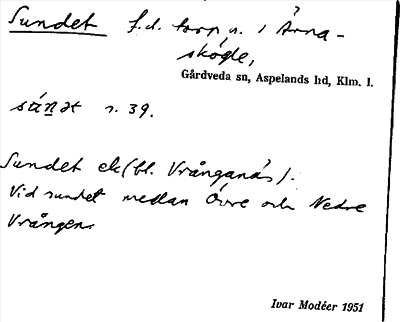 Sundet f.d. torp, n. i Årena-
skógle,
Gårdveda sn, Aspelands hd, Klm. l.
sú̀ṇət s. 39.
Sundet ek (bl. Vrånganäs).
Vid sundet mellan Övre och Nedre
Vrången.
Ivar Modéer 1951